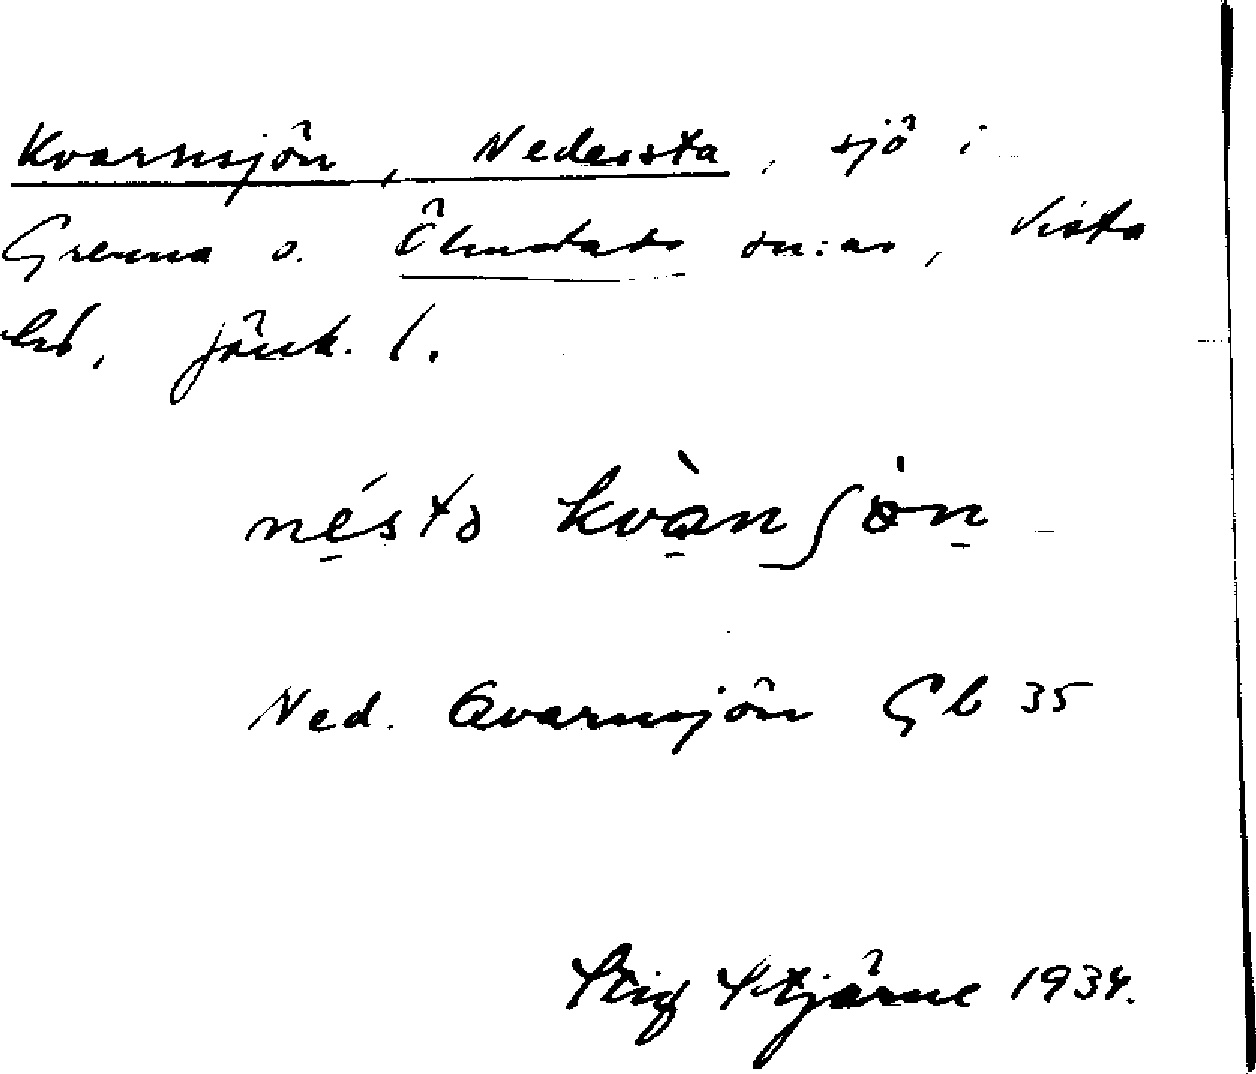 Kvarnsjön, Nedersta, sjö i
Grenna o. Ölmstads sn:ar, Vista
hd, Jönk. l.
néstə kvànʃön
Ned. Qvarnsjön Gb 35
Stig Stjärne 1934.